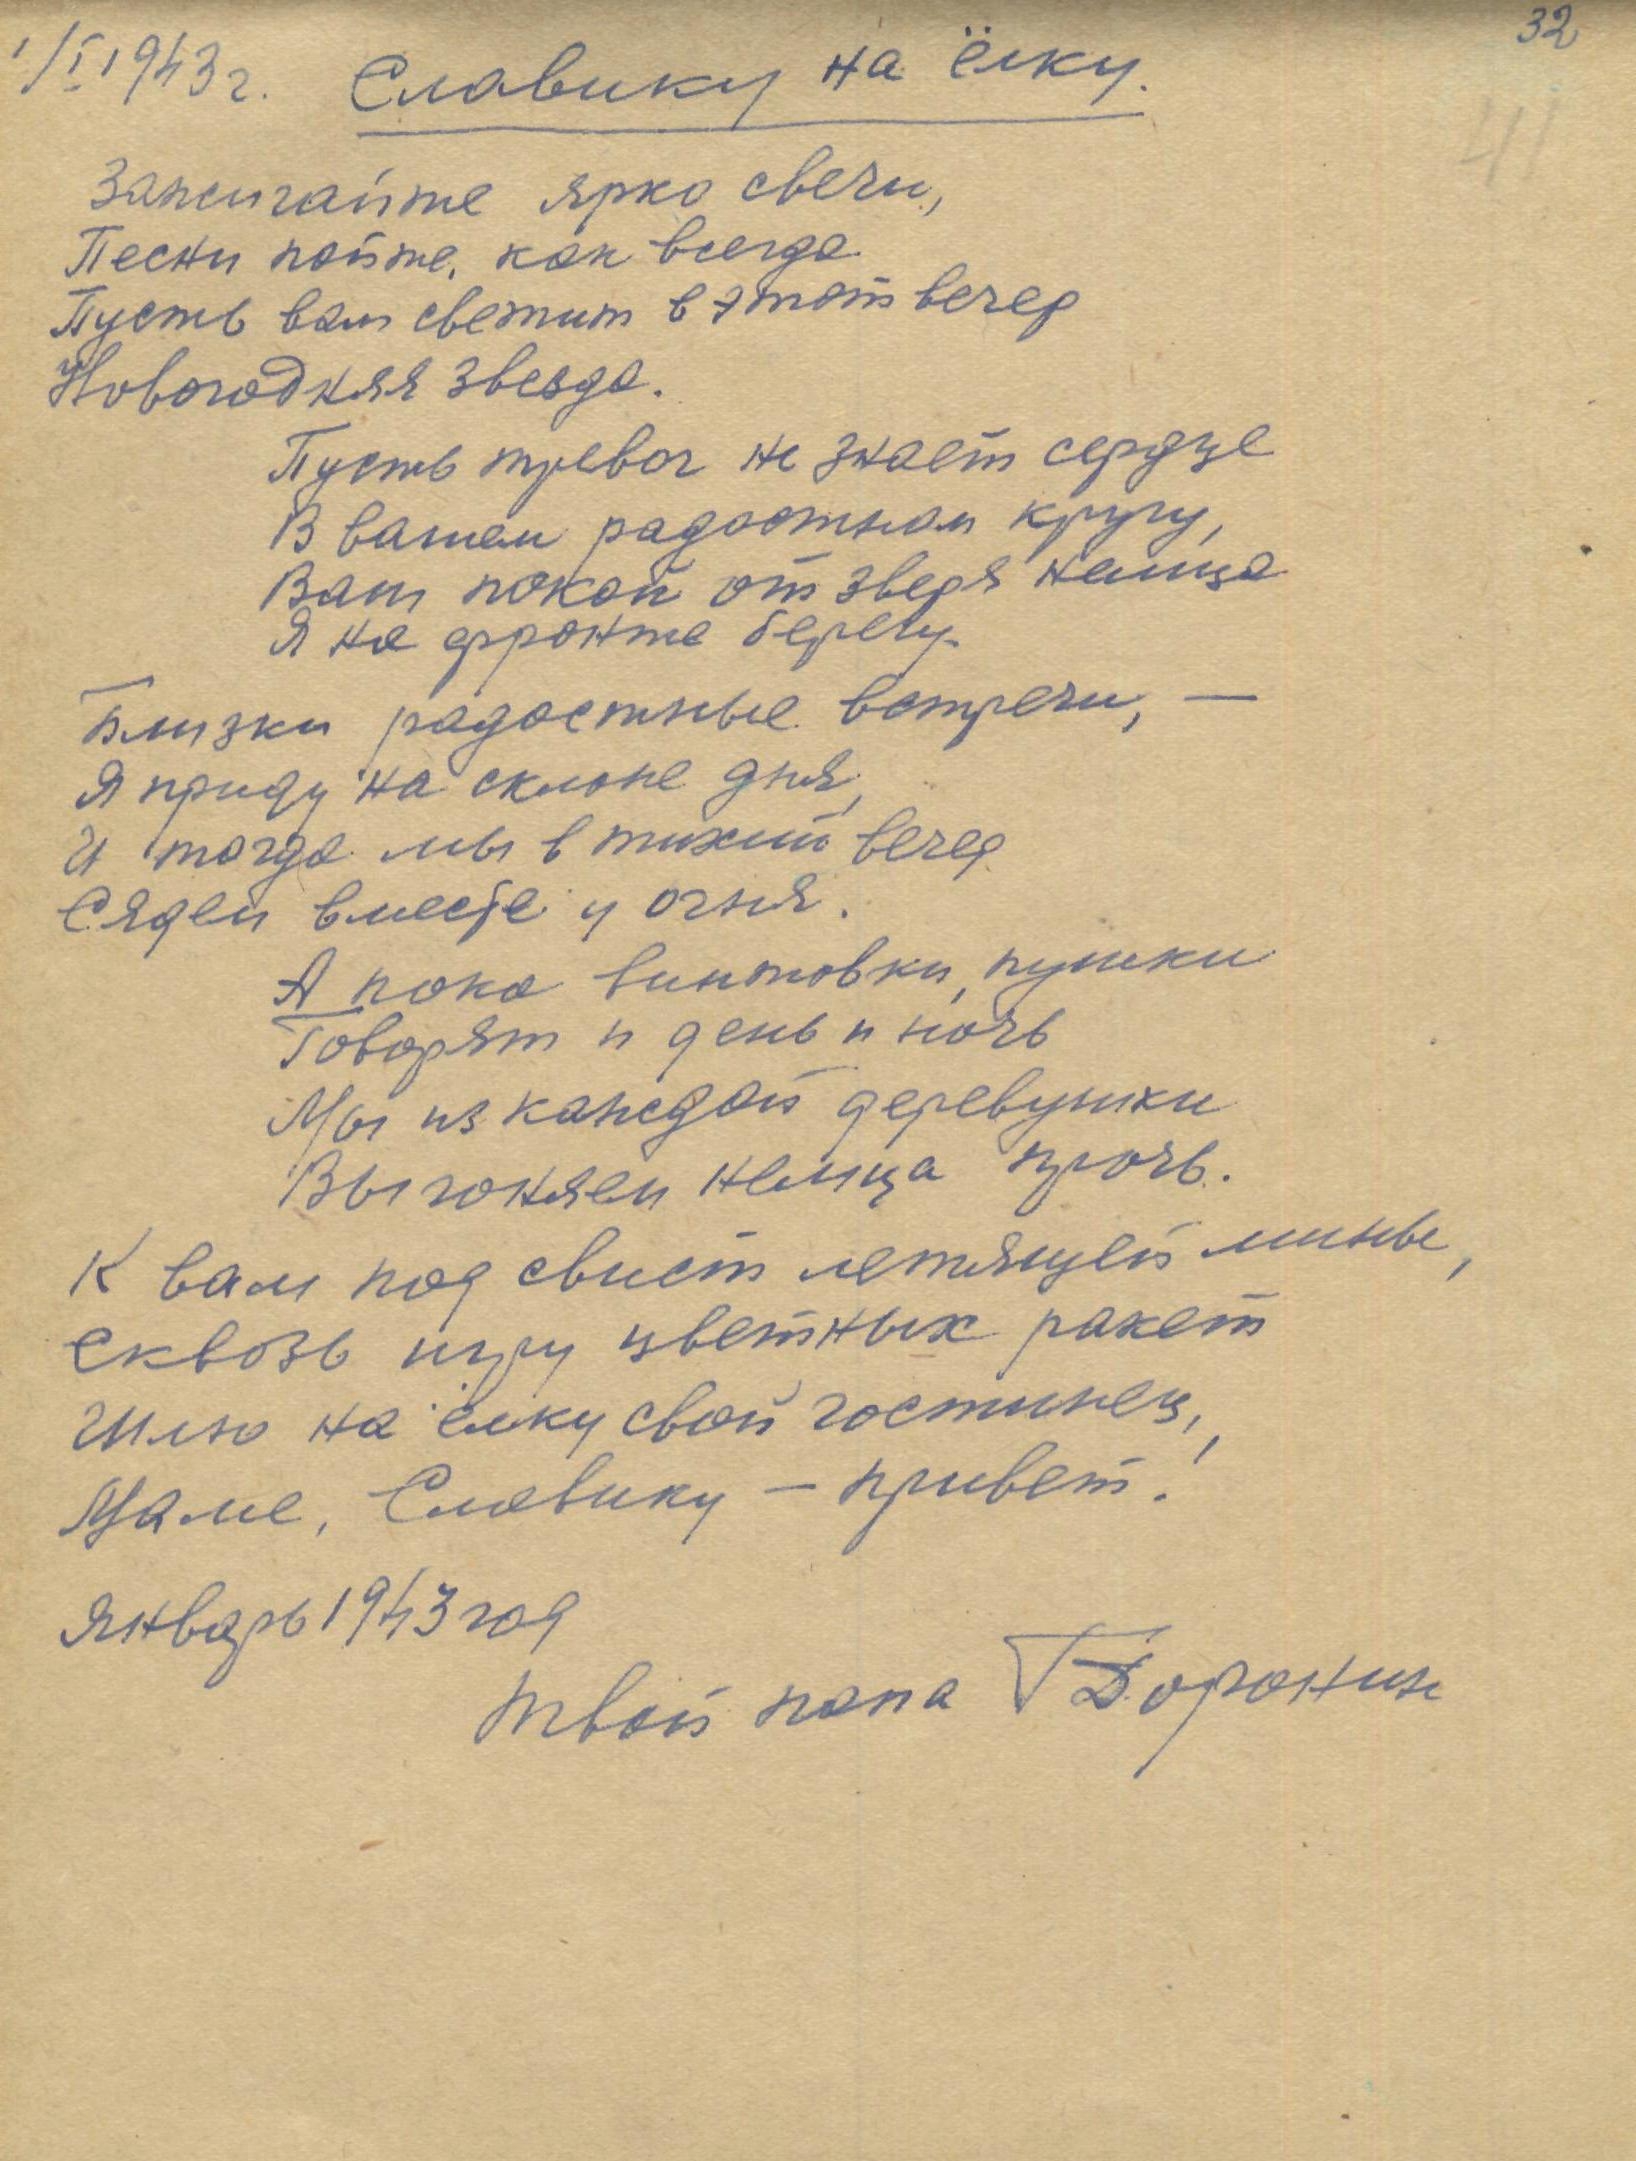 32
1/I 1943 г. Славику на ёлку.
41
Зажигайте ярко свечи,
Песни пойте, как всегда
Пусть вам светит в этот вечер
Новогодняя звезда.
Пусть тревог не знает сердце
В вашем радостном кругу,
Ваш покой от зверя немца
Я на фронте берегу.
Близки радостные встречи, —
Я приду на склоне дня,
И тогда мы в тихий вечер
Сядем вместе у огня.
А пока винтовки, пушки
Говорят и день и ночь
Мы из каждой деревушки
Выгоняем немца прочь.
К вам под свист летящей мины,
Сквозь игру цветных ракет
Шлю на ёлку свой гостинец,
Маме, Славику – привет!
Январь 1943 год
Твой папа Г Доронин